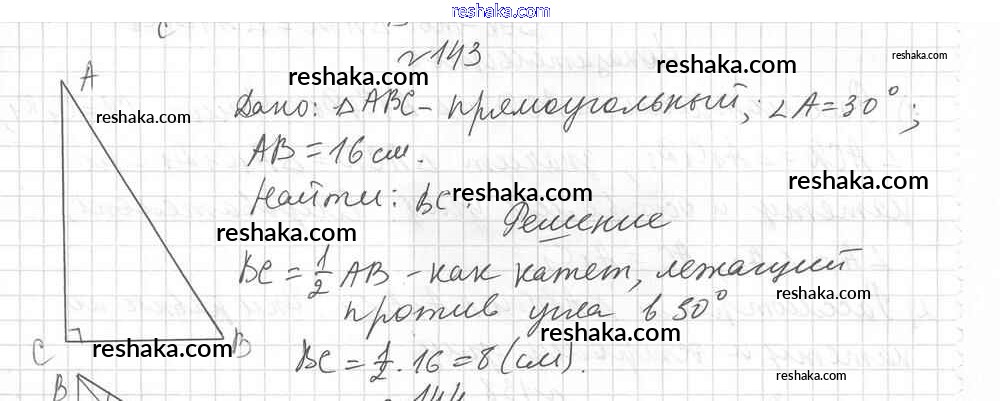 reshaka.com
№143
A
reshaka.com
reshaka.com
reshaka.com
Дано: △ABC - прямоугольный; ∠A=30°;
AB=16 см.
reshaka.com
Найти: BC.
reshaka.com
reshaka.com
Решение
BC = 1/2 AB - как катет, лежащий
против угла в 30°
reshaka.com
reshaka.com
C
B
reshaka.com
BC = 1/2 · 16 = 8 (см).
reshaka.com
B
144